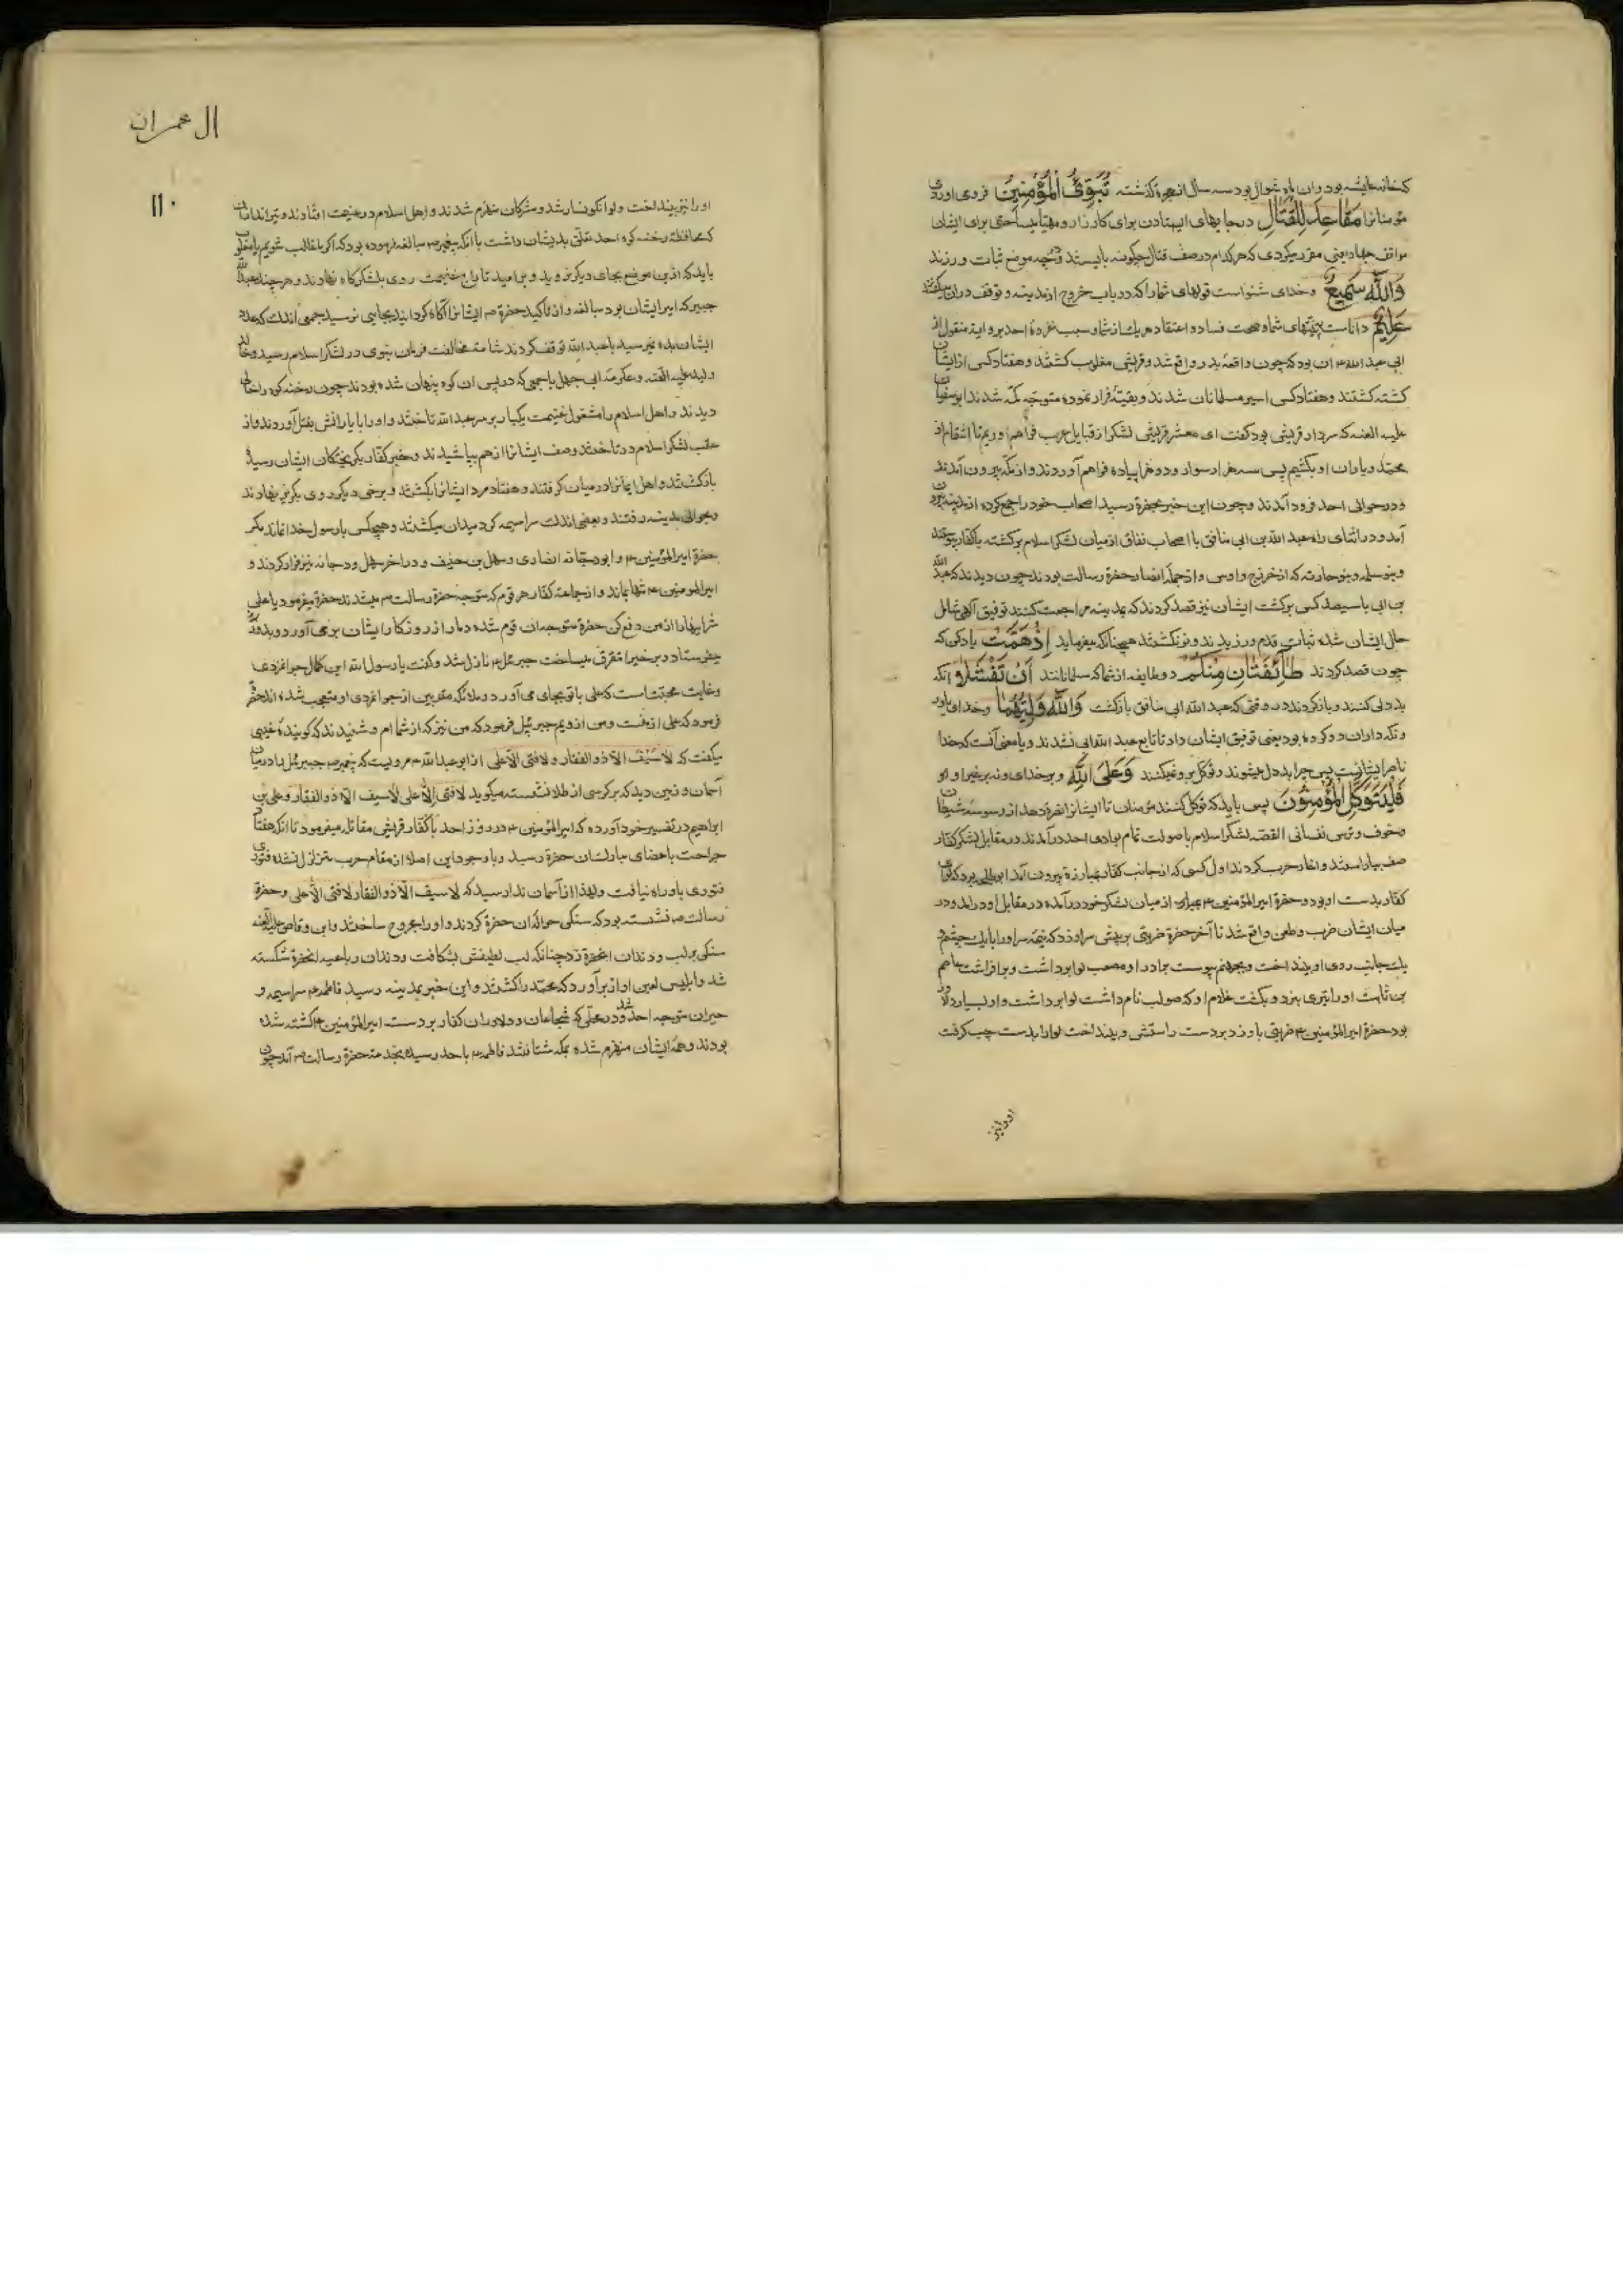 که خانه عایشه بود و ان ماه شوال بود سه سال از هجرة گذشته تُبَوِّئُ الْمُؤْمِنِينَ فرود می اوردی
مؤمنانرا مَقَاعِدَ لِلْقِتَالِ در جایهای ایستادن برای کارزار و مهیا میساختی برای ایشان
مواقف جهاد یعنی مقرر میکردی که هر کدام در صف قتال چگونه بایستند و بچه موضع ثبات ورزند
وَاللّٰهُ سَمِيعٌ و خدای شنواست قولهای شما را که در باب خروج از مدینه و توقف دران میگفتند
عَلِيمٌ داناست بنیتهای شما و صحت فساد و اعتقاد هر یک از شما و سبب غزوهٔ احد بروایة منقول از
ابی عبد الله ع ان بود که چون واقعهٔ بدر واقع شد و قریش مغلوب گشتند و هفتاد کس از ایشان
کشته گشتند و هفتاد کس اسیر مسلمانان شدند و بقیهٔ فرار نموده متوجه مکه شدند ابو سفیان
علیه العنه که سردار قریش بود گفت ای معشر قریش لشکر از قبایل عرب فراهم اوریم تا انتقام از
محمد و یاران او بکشیم پس سه هزار سوار و دو هزار پیاده فراهم آوردند و از مکه بیرون آمدند
و در حوالی احد فرود آمدند و چون این خبر بحضرة رسید اصحاب خود را جمع کرده از مدینه بیرون
آمد و در اثنای راه عبد الله بن ابی منافق با اصحاب نفاق از میان لشکر اسلام برگشته با کفار پیوستند
و بنو سلمه و بنو حارثه که از خزرج و اوس و از جملهٔ انصار حضرة رسالت بودند چون دیدند که عبد الله
بن ابی با سیصد کس برگشت ایشان نیز قصد کردند که بمدینه مراجعت کنند توفیق آلهی شامل
حال ایشان شده ثبات قدم ورزیدند و برنگشتند همچنانکه میفرماید إِذْ هَمَّتْ یاد کن که
چون قصد کردند طَائِفَتَانِ مِنْكُمْ دو طایفه از شما که مسلمانانند أَنْ تَفْشَلَا آنکه
بد دلی کنند و باز گردند در وقتی که عبد الله ابی منافق بازگشت وَاللّٰهُ وَلِيُّهُمَا و خدای یاور
و نگه داران دو گروه بود یعنی توفیق ایشان داد تا تابع عبد الله ابی نشدند و یا معنی آنست که خدا
ناصر ایشانست پس چرا بد دل میشوند و توکل برو نمیکنند وَعَلَى اللّٰهِ و بر خدای و نه بر غیر او
فَلْيَتَوَكَّلِ الْمُؤْمِنُونَ پس باید که توکل کنند مؤمنان تا ایشانرا نصرة دهد از وسوسهٔ شیطان
و خوف و ترس نفسانی القصه لشکر اسلام با صولت تمام بوادی احد درآمدند در مقابل لشکر کفار
صف بیاراستند و اغاز حرب کردند اول کسی که از جانب کفار بمبارزة بیرون آمد ابو طلحه بود که لوای
کفار بدست او بود و حضرة امیر المؤمنین ع از میان لشکر خود درآمده در مقابل او درامد و در
میان ایشان ضرب و طعن واقع شد تا آخر حضرة ضربتی بر پیش سر او زد که نیمهٔ سر او را با یک چشم و
یک جانب روی او بینداخت و بجهنم پیوست برادر او مصعب لوا برداشت و بر افراشت عاصم
بن ثابت او را تیری بزد و بکشت غلام او که صواب نام داشت لوا برداشت و او بسیار دلاور
بود حضرة امیر المؤمنین ع ضربتی باو زد بر دست راستش و بینداخت لوا را بدست چپ گرفت
او را نیز
ال عمران
۱۱۰
او را نیز بینداخت و لوا نگونسار شد و مشرکان منهزم شدند و اهل اسلام در غنیمت افتادند و تیراندازان
که محافظهٔ رخنه کوه احد تعلق بدیشان داشت با آنکه پیغمبر ص مبالغه فرموده بود که اگر ما غالب شویم یا مغلوب
باید که ازین موضع بجای دیگر نروید و بر امید تاراج غنیمت روی بلشکرگاه نهادند و هر چند عبد الله
جبیر که امیر ایشان بود مبالغه و از تاکید حضرة ص ایشانرا آگاه گردانید بجایی نرسید جمعی اندک که عدد
ایشان بده نمیرسید با عبد الله توقف کردند شامت مخالفت فرمان نبوی در لشکر اسلام رسید و خالد
ولید علیه العنه و عکرمهٔ ابی جهل با جمعی که در پس ان کوه پنهان شده بودند چون رخنه کوه را خالی
دیدند و اهل اسلام را مشغول غنیمت یکبار بر سر عبد الله تاختند و او را با یارانش بقتل آوردند و از
عقب لشکر اسلام در تاختند و صف ایشانرا از هم بپاشیدند و خبر کفار بگریختگان ایشان رسید
بازگشتند و اهل ایمانرا در میان گرفتند و هفتاد مرد ایشانرا بکشتند و برخی دیگر روی بگریز نهادند
و بحوالی مدینه رفتند و بعضی اندک سراسیمه گرد میدان میگشتند و هیچکس با رسول خدا نماند مگر
حضرة امیر المؤمنین ع و ابو دجانه انصاری و سهل بن حنیف و در اخر سهل و دجانه نیز فرار کردند و
امیر المومنین ع تنها بماند و از جماعة کفار هر قوم که متوجه حضرة رسالت ص میشدند حضرة میفرمود یا علی
شر اینها را از من دفع کن حضرة متوجه ان قوم شده دمار از روزگار ایشان بر می آورد و بدوزخ
میفرستاد و برخی را متفرق میساخت جبرئیل ع نازل شد و گفت یا رسول الله این کمال جوانمردی
و غایت محبتست که علی با تو بجای می آورد و ملائکه مقربین از جوانمردی او متعجب شده اند حضرة
فرمود که علی از منست و من از ویم جبرئیل فرمود که من نیز که از شما ام و شنیدند که گویندهٔ غیبی
میگفت که لا سیف الا ذو الفقار و لا فتی الا علی از ابو عبد الله ع مرویست که پیغمبر ص جبرئیل را در میان
آسمان و زمین دید که بر کرسی از طلا نشسته میگوید لا فتی الا علی لا سیف الا ذو الفقار و علی بن
ابراهیم در تفسیر خود آورده که امیر المؤمنین ع در روز احد با کفار قریش مقاتله میفرمود تا انکه هفتاد
جراحت باعضای مبارک ان حضرة رسید و با وجود این اصلا از مقام حرب متزلزل نشده فتوری
فتوری باو راه نیافت و لهذا از آسمان ندا رسید که لا سیف الا ذو الفقار لا فتی الا علی و حضرة
رسالت ص نشسته بود که سنگی حوالهٔ ان حضرة کردند و او را مجروح ساختند و ابن وقاص علیه العنه
سنگی بر لب و دندان انحضرة زد چنانکه لب لطیفش بشکافت و دندان رباعیه انحضرة شکسته
شد و ابلیس لعین اواز برآورد که محمد را کشتند و این خبر بمدینه رسید فاطمه ع سراسیمه و
حیران متوجه احد شد و در محلی که شجاعان و دلاوران کفار بر دست امیر المؤمنین ع کشته شده
بودند و همه ایشان منهزم شده بمکه شتافتند فاطمه ع باحد رسیده بخدمت حضرة رسالت ص آمد چون